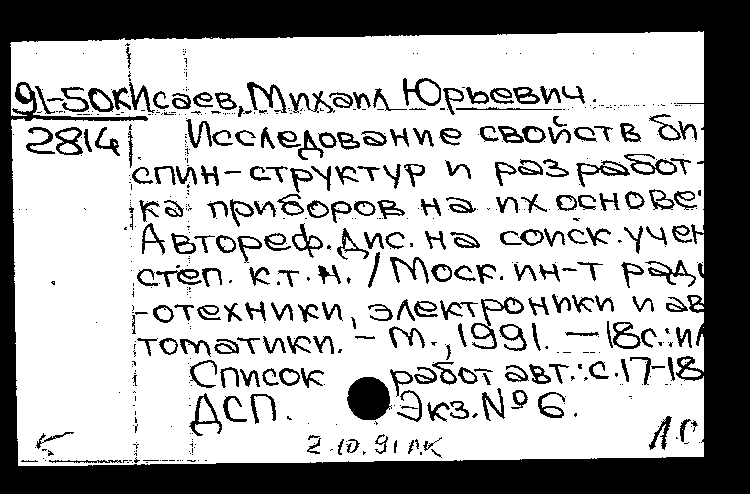 91-50к Исаев, Михаил Юрьевич.
2814 Исследование свойств би-
спин-структур и разработ-
ка приборов на их основе:
Автореф. дис. на соиск. учен
степ. к.т.н. / Моск. ин-т ради
-отехники, электроники и ав
томатики. - М., 1991. - 18с.: ил
Список работ авт.: с. 17-18
ДСП. Экз. № 6.
2.10.91 ЛК
Л.С.